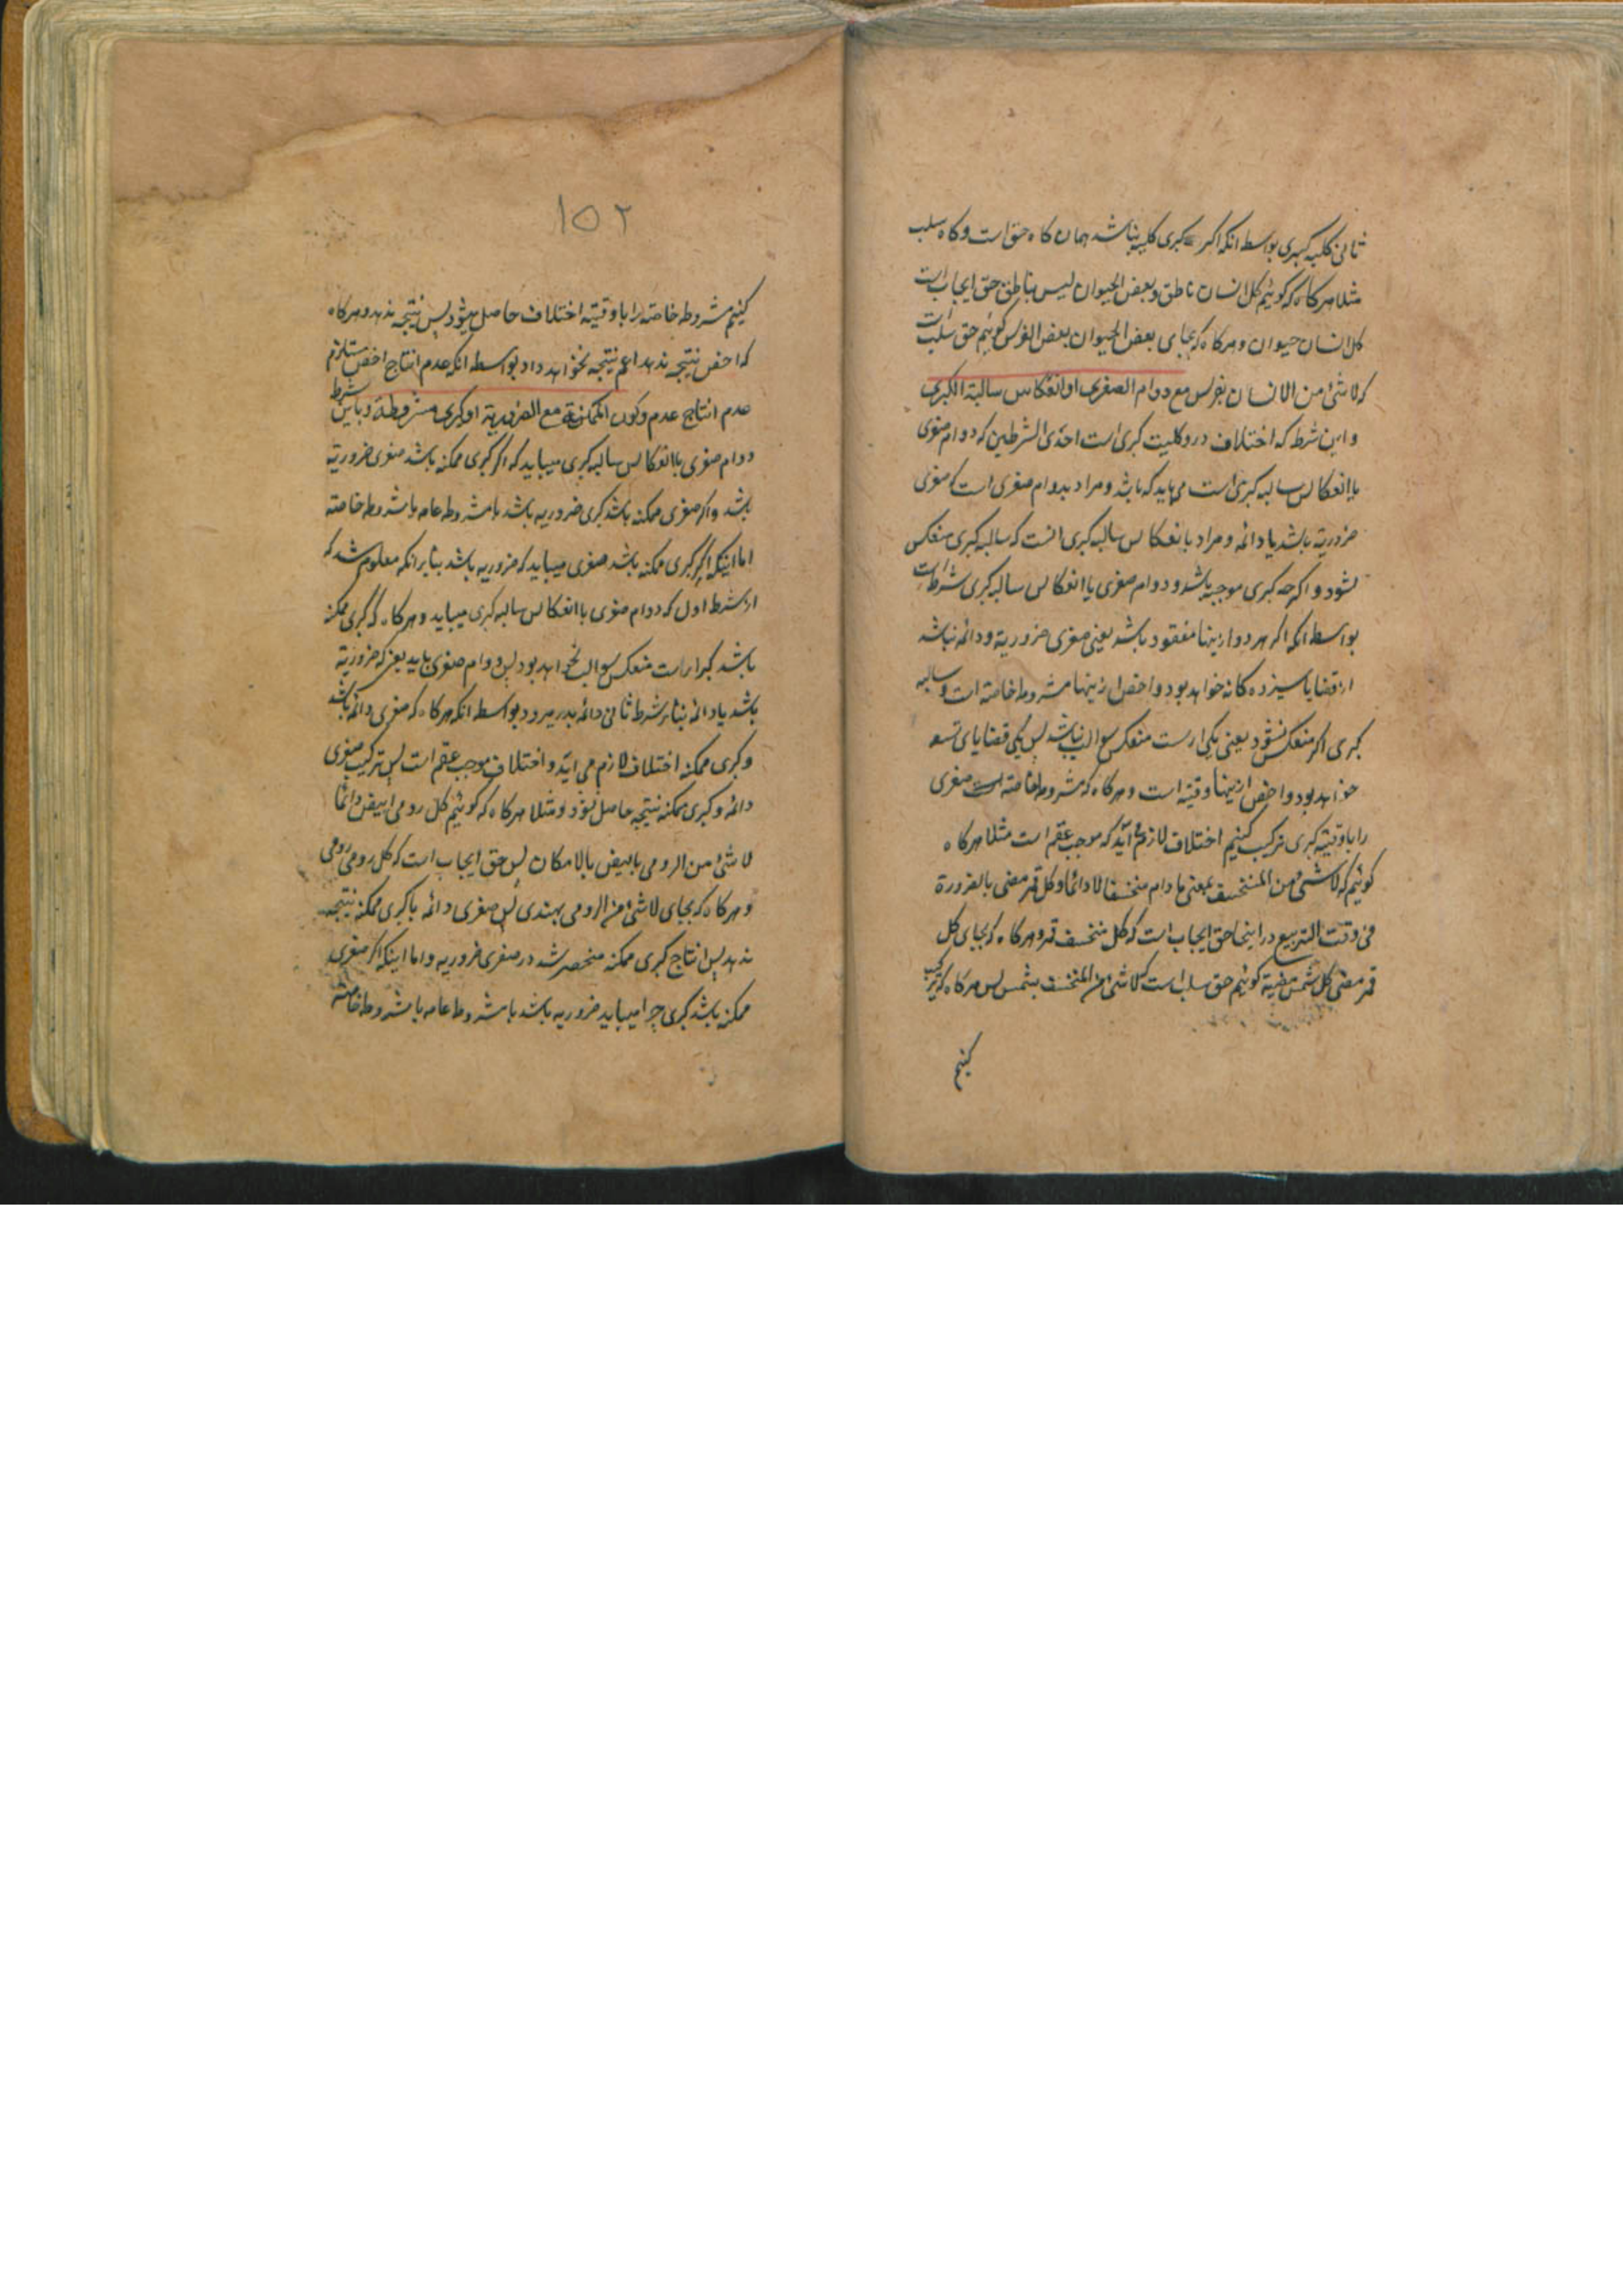 ثانی کلیه کبری بواسطه انکه اکر کبری کلیه نباشد همان کاه حق است و کاه سلب
مثلا هرکاه که کوئیم کل انسان ناطق و بعض الحیوان لیس بناطق حق ایجاب است
کل انسان حیوان و هرکاه که بجای بعض الحیوان بعض الفرس کوئیم حق سلب است
که لا شئ من الانسان بفرس مع دوام الصغری او انعکاس سالبة الکبری
و این شرط که اختلاف در و کلیت کبری است احدی الشرطین که دوام صغری
یا انعکاس سالبه کبری است می باید که باشد و مراد بدوام صغری است که صغری
ضروریة باشد یا دائمه و مراد بانعکاس سالبه کبری انست که سالبه کبری منعکس
شود و اکرچه کبری موجبه باشد و دوام صغری یا انعکاس سالبه کبری شرط است
بواسطه انکه اکر هر دو ازینها مفقود باشد یعنی صغری ضروریة و دائمه نباشد
از قضایا سیزده کانه خواهد بود و اخص ازینها مشروطه خاصه است و سالبه
کبری اکر منعکس نشود یعنی یکی از ست منعکس سوالب نباشد پس یکی قضایای تسع
خواهد بود و اخص ازینها وقتیه است و هرکاه که مشروطه خاصه است صغری
را با وقتیه کبری ترکیب کنیم اختلاف لازم آید که موجب عقم است مثلا هرکاه
کوئیم که لا شئ من المنخسف بمضی ما دام منخسفا لا دائما و کل قمر مضی بالضرورة
فی وقت التربیع در اینجا حق ایجاب است که کل منخسف قمر و هرکاه که بجای کل
قمر مضی کل شمس مضیة کوئیم حق سلب است که لا شئ من المنخسف بشمس پس هرکاه که ترکیب
کنیم
۱۵۲
کنیم مشروطه خاصه را با وقتیه اختلاف حاصل میشود پس نتیجه ندهد و هرکاه
که اخص نتیجه ندهد اعم نتیجه نخواهد داد بواسطه انکه عدم انتاج اخص مستلزم
عدم انتاج عدم وکون الممکنة مع الضروریة او کبری مشروطة و باین شرط
دوام صغری یا انعکاس سالبه کبری میباید که اکر کبری ممکنه باشد صغری ضروریة
باشد و اکر صغری ممکنه باشد کبری ضروریه باشد یا مشروطه عامه یا مشروطه خاصه
اما اینکه اکر کبری ممکنه باشد صغری میباید که ضروریه باشد بنابر انکه معلوم شد که
از شرط اول که دوام صغری یا انعکاس سالبه کبری میباید و هرکاه که کبری ممکنه
باشد کبرا از ست منعکس سوالب نخواهد بود پس دوام صغری باید یعنی که ضروریة
باشد یا دائمه بنابر شرط ثانی دائمه بدر میرود بواسطه انکه هرکاه که صغری دائمه باشد
و کبری ممکنه اختلاف لازم می اید و اختلاف موجب عقم است پس ترکیب صغری
دائمه و کبری ممکنه نتیجه حاصل نشود و مثلا هرکاه که کوئیم کل رومی ابیض دائما
لا شئ من الرومی بابیض بالامکان پس حق ایجاب است که کل رومی رومی
و هرکاه که بجای لا شئ من الرومی بهندی پس صغری دائمه با کبری ممکنه نتیجه
ندهد پس انتاج کبری ممکنه منحصر شد در صغری ضروریه و اما اینکه اکر صغری
ممکنه باشد کبری چرا میباید ضروریه باشد یا مشروطه عامه یا مشروطه خاصه